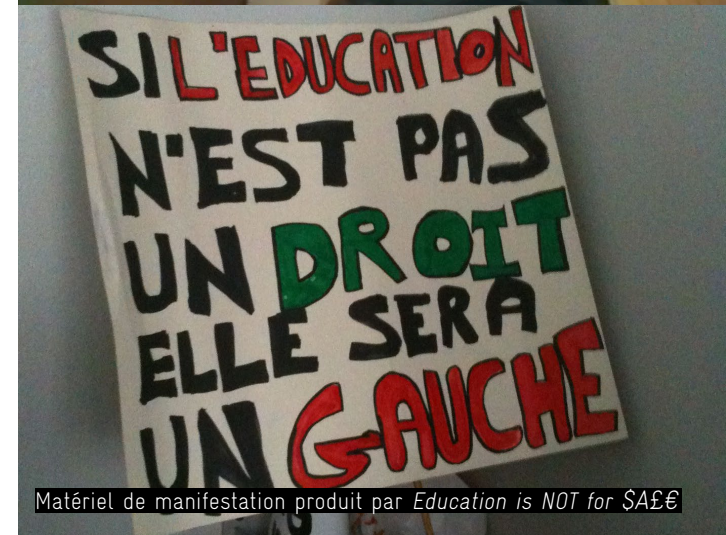 SI L'EDUCATION
N'EST PAS
UN DROIT
ELLE SERA
UN GAUCHE
Matériel de manifestation produit par Education is NOT for $A£€